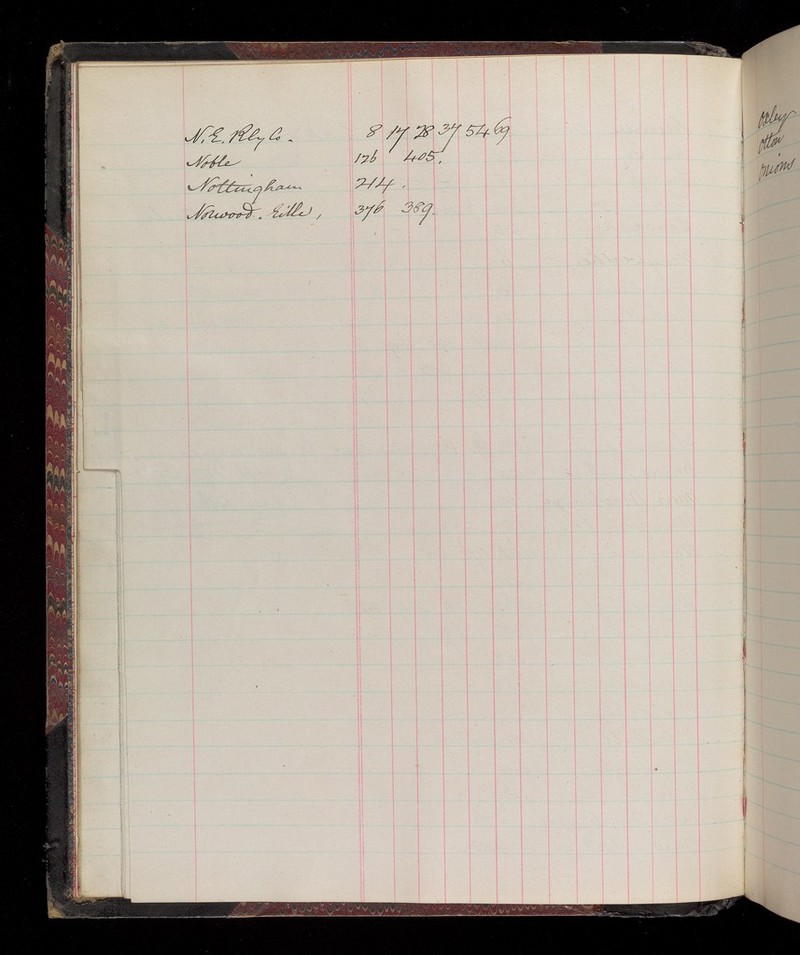 N. E. Rly Co. 8 17 28 37 54 69
Noble 176 405.
Nottingham 214.
Norwood. 376 389.
Oxley
Otton
Onions